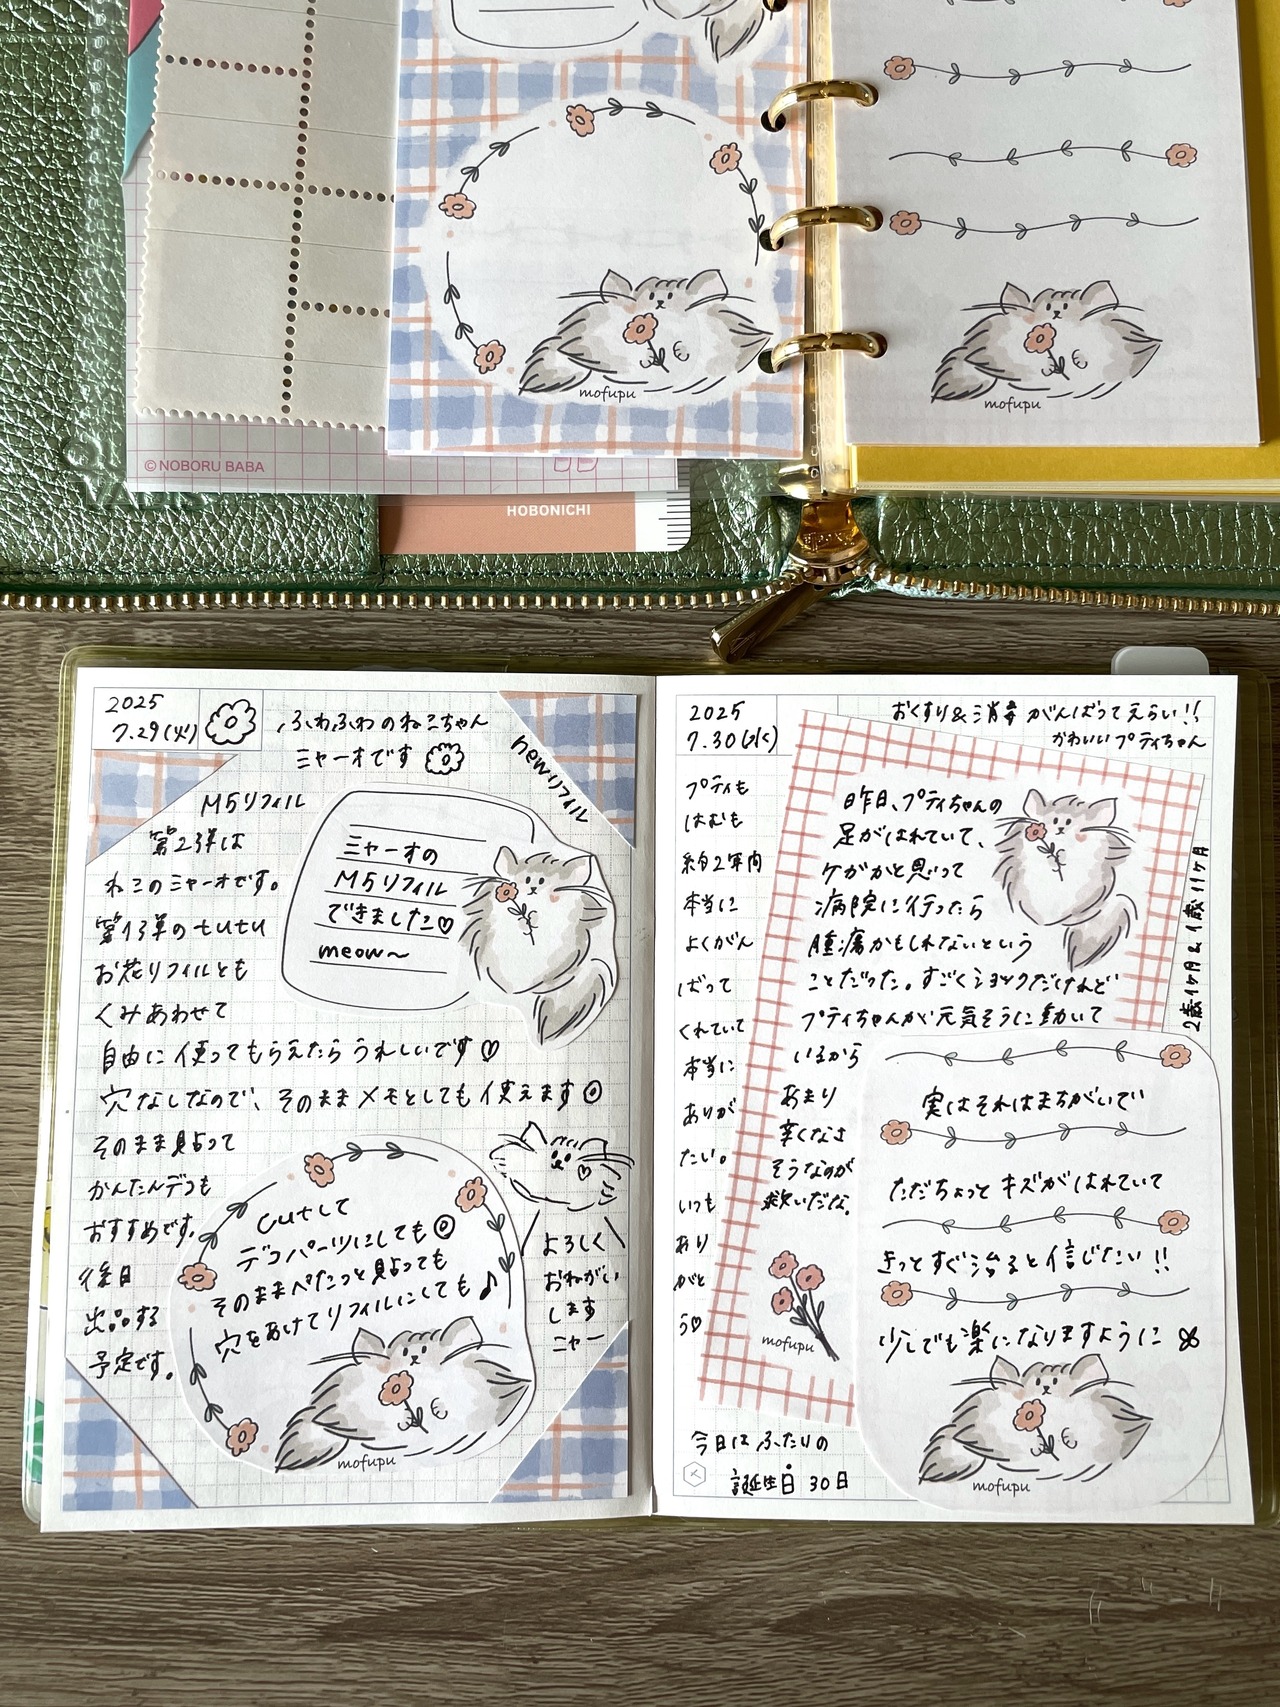 mofupu
mofupu
© NOBORU BABA
HOBONICHI
2025
7.29(火)
ふわふわのねこちゃん
ミャーオです
newリフィル
M5リフィル
第2弾は
ねこのミャーオです。
第1弾のtutu
お花リフィルとも
くみあわせて
自由に使ってもらえたらうれしいです♡
穴なしなので、そのままメモとしても使えます◎
そのまま貼って
かんたんデコも
おすすめです。
後日
出品する
予定です。
ミャーオの
M5リフィル
できました♡
meow〜
cutして
デコパーツにしても◎
そのままぺたっと貼っても
穴をあけてリフィルにしても♪
mofupu
よろしく
おねがい
します
ニャー
2025
7.30(水)
おくすり&消毒がんばってえらい!!
かわいいプティちゃん
プティも
はむも
約2年内
本当に
よくがん
ばって
くれていて
本当に
ありが
たい。
いつも
あり
がと
う♡
昨日、プティちゃんの
足がはれていて、
ケガかと思って
病院に行ったら
腫瘍かもしれないという
ことだった。すごくショックだけれど
プティちゃんが元気そうに動いて
いるから
あまり
辛くなさ
そうなのが
救いだな。
2歳1ヶ月&1歳11ヶ月
実はそれはまちがいで
ただちょっとキズがはれていて
きっとすぐ治ると信じたい!!
少しでも楽になりますように
mofupu
mofupu
今日はふたりの
誕生日 30日